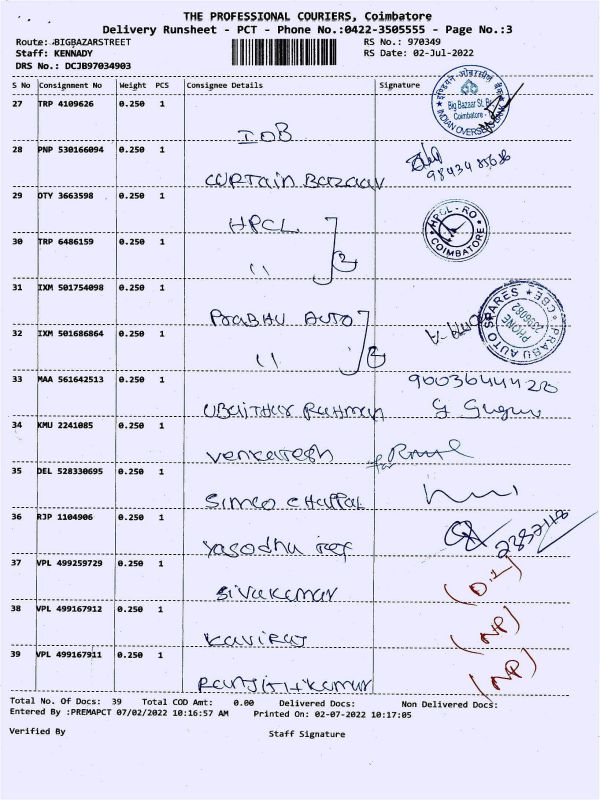 THE PROFESSIONAL COURIERS, Coimbatore
Delivery Runsheet - PCT - Phone No.:0422-3505555 - Page No.:3
Route: BIGBAZARSTREET RS No.: 970349
Staff: KENNADY RS Date: 02-Jul-2022
DRS No.: DCJB97034903
S No Consignment No Weight PCS Consignee Details Signature
27 TRP 4109626 0.250 1
IOB
Big Bazaar St. Br.
Coimbatore
INDIAN OVERSEAS BANK
28 PNP 530166094 0.250 1
CURTAIN BAZAAR
29 OTY 3663598 0.250 1
HPCL
HPCL - RO
COIMBATORE
30 TRP 6486159 0.250 1
11 2
31 IXM 501754098 0.250 1
PRABHU AUTO
PRABU AUTO SPARES ★ CBE
PHONE
32 IXM 501686864 0.250 1
11 2
33 MAA 561642513 0.250 1 
UBAITHUR RAHMAN
34 KMU 2241085 0.250 1
Venkatesh for
35 DEL 528330695 0.250 1
SIMCO CHAPPAL
36 RJP 1104906 0.250 1
Yasodha
37 VPL 499259729 0.250 1
Sivakumar
38 VPL 499167912 0.250 1
Kaviraj (NP)
39 VPL 499167911 0.250 1
Ranjithkumar (NP)
Total No. Of Docs: 39 Total COD Amt: 0.00 Delivered Docs: Non Delivered Docs:
Entered By :PREMAPCT 07/02/2022 10:16:57 AM Printed On: 02-07-2022 10:17:05
Verified By Staff Signature